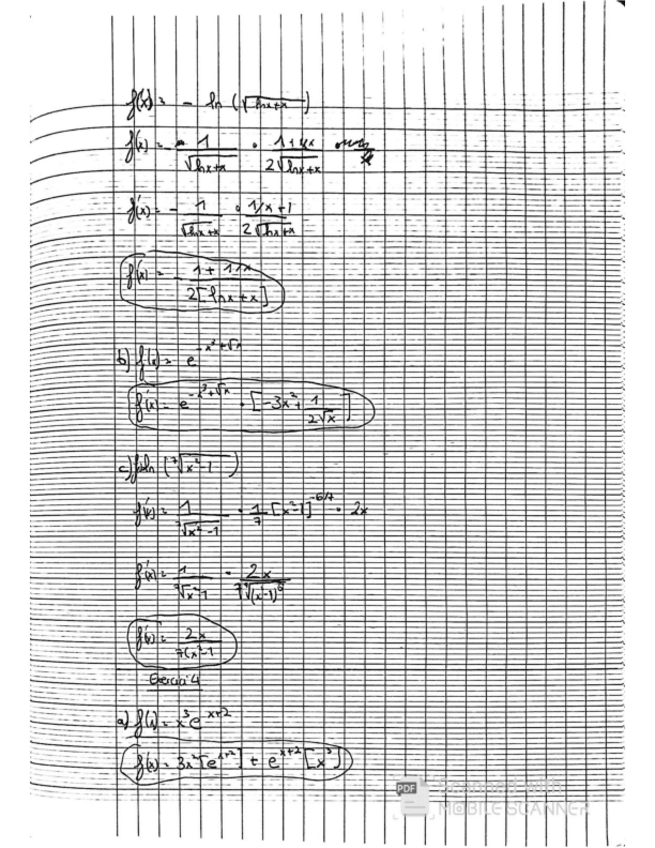 f(x) = - ln (√lnx+x)
f'(x) = - 1/√lnx+x · 1+1/x/2√lnx+x
f'(x) = - 1/√lnx+x · 1/x+1/2√lnx+x
f'(x) = - 1+1/x/2[lnx+x]
b) f(x) = e^-x³+√x
f'(x) = e^-x³+√x · [-3x²+1/2√x]
c) f(x)=ln (⁷√x²-1)
f'(x) = 1/⁷√x²-1 · 1/7 [x²-1]^-6/7 · 2x
f'(x) = 1/⁷√x²-1 · 2x/7⁷√(x²-1)⁶
f'(x) = 2x/7(x²-1
Exercici 4
a) f(x) = x³e^x+2
f'(x) = 3x²[e^x+2] + e^x+2 [x³]
PDF Scanned with
MOBILE SCANNER